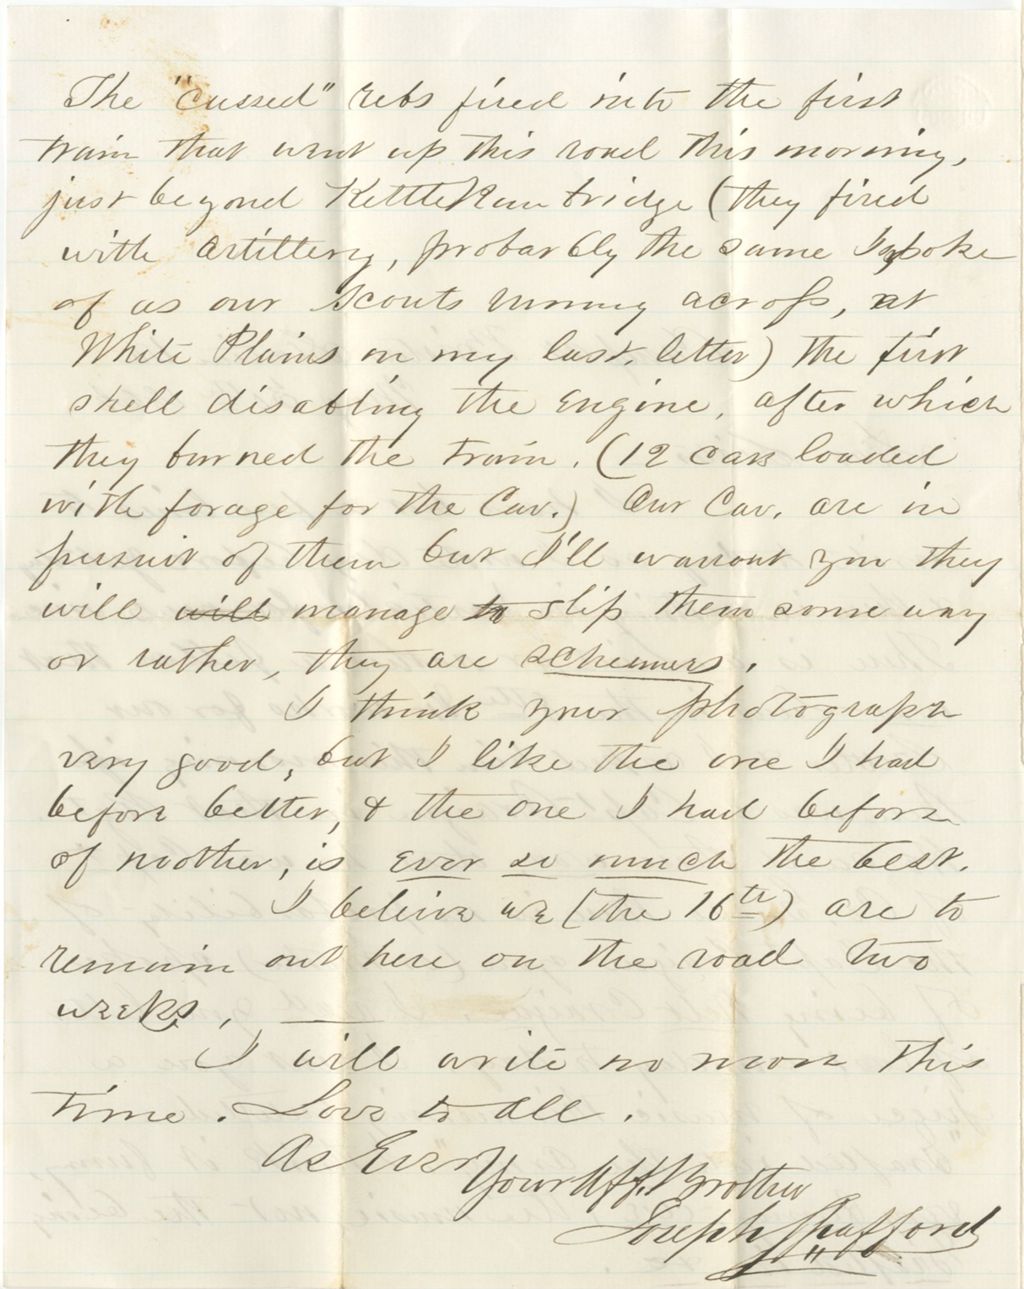 The "cussed" rebs fired into the first
train that went up this road this morning,
just beyond Kettle Run bridge (they fired
with artillery, probarbly the same I spoke
of as our scouts running across, at
White Plains in my last letter) the first
shell disabling the Engine, after which
they burned the train. (12 cars loaded
with forage for the Cav.) Our Cav. are in
pursuit of them but I'll warrant you they
will will manage to slip them some way
or rather, they are schemers.
I think your photograph
very good, but I like the one I had
before better, & the one I had before
of mother, is ever so much the best.
I believe we (the 16th) are to
remain out here on the road two
weeks,
I will write no more this
time. Love to all.
As Ever
Your Aff. Brother
Joseph Spafford